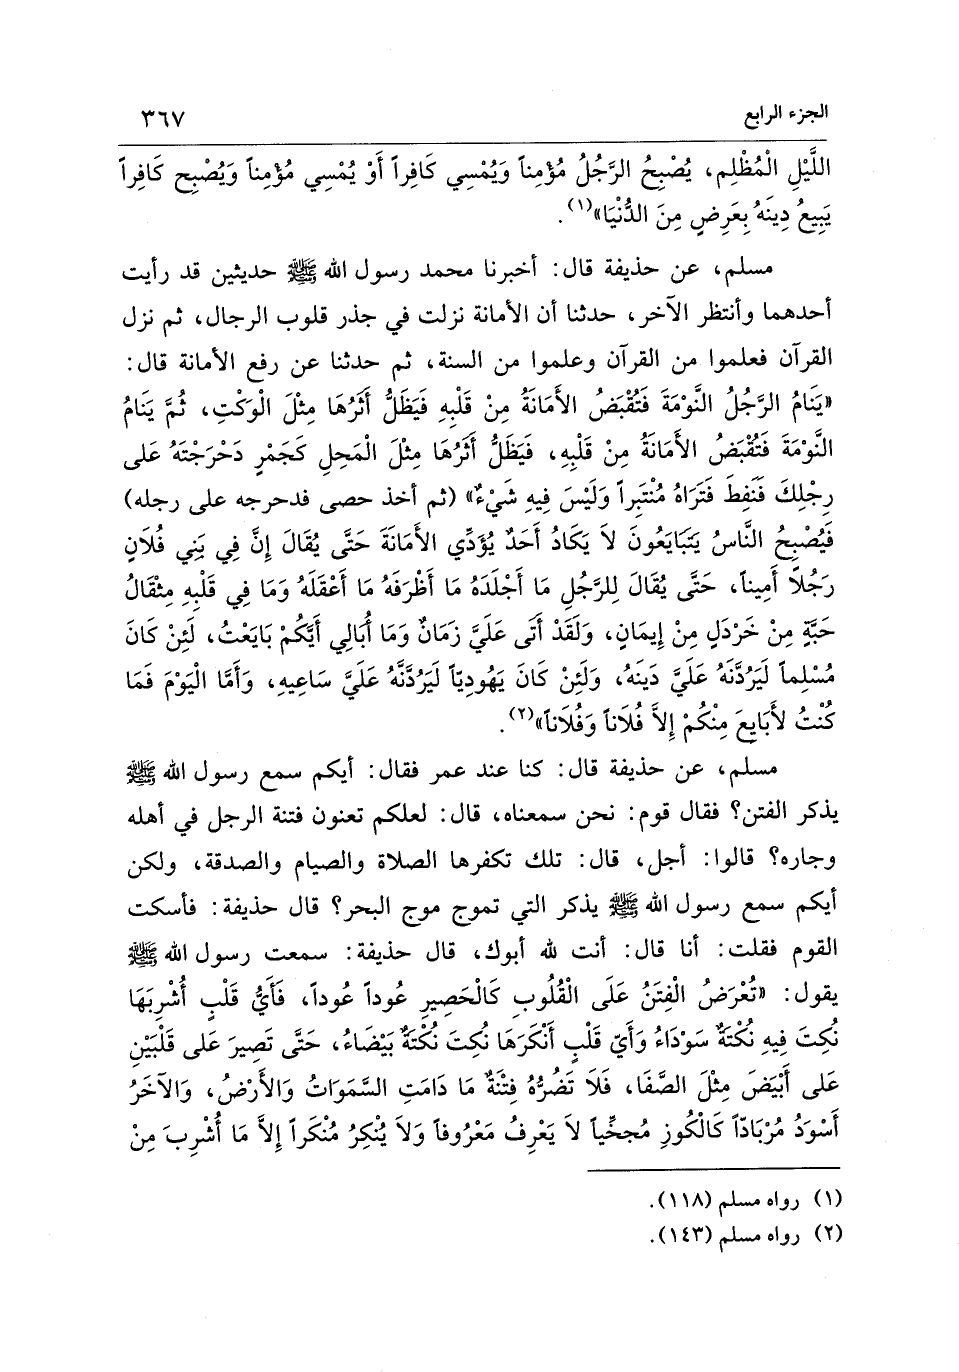 الجزء الرابع ٣٦٧
اللَّيْلِ الْمُظْلِمِ، يُصْبِحُ الرَّجُلُ مُؤْمِناً وَيُمْسِي كَافِراً أَوْ يُمْسِي مُؤْمِناً وَيُصْبِح كَافِراً
يَبِيعُ دِينَهُ بِعَرِضٍ مِنَ الدُّنْيَا»(١).
مسلم، عن حذيفة قال: أخبرنا محمد رسول الله ﷺ حديثين قد رأيت
أحدهما وأنتظر الآخر، حدثنا أن الأمانة نزلت في جذر قلوب الرجال، ثم نزل
القرآن فعلموا من القرآن وعلموا من السنة، ثم حدثنا عن رفع الأمانة قال:
«يَنَامُ الرَّجُلُ النَّوْمَةَ فَتُقْبَضُ الأَمَانَةُ مِنْ قَلْبِهِ فَيَظَلُّ أَثَرُهَا مِثْلَ الْوَكْتِ، ثُمَّ يَنَامُ
النَّوْمَةَ فَتُقْبَضُ الأَمَانَةُ مِنْ قَلْبِهِ، فَيَظَلُّ أَثَرُهَا مِثْلَ الْمَجِلِ كَجَمْرٍ دَحْرَجْتَهُ عَلَى
رِجْلِكَ فَنَفِطَ فَتَرَاهُ مُنْتَبِراً وَلَيْسَ فِيهِ شَيْءٌ» (ثم أخذ حصى فدحرجه على رجله)
فَيُصْبِحُ النَّاسُ يَتَبَايَعُونَ لاَ يَكَادُ أَحَدٌ يُؤَدِّي الأَمَانَةَ حَتَّى يُقَالَ إِنَّ فِي بَنِي فُلَانٍ
رَجُلاً أَمِيناً، حَتَّى يُقَالَ لِلرَّجُلِ مَا أَجْلَدَهُ مَا أَظْرَفَهُ مَا أَعْقَلَهُ وَمَا فِي قَلْبِهِ مِثْقَالُ
حَبَّةٍ مِنْ خَرْدَلٍ مِنْ إِيمَانٍ، وَلَقَدْ أَتَى عَلَيَّ زَمَانٌ وَمَا أُبَالِي أَيَّكُمْ بَايَعْتُ، لَئِنْ كَانَ
مُسْلِماً لَيَرُدَّنَهُ عَلَيَّ دَينَهُ، وَلَئِنْ كَانَ يَهُودِيّاً لَيَرُدَّنَّهُ عَلَيَّ سَاعِيهِ، وَأَمَّا الْيَوْمَ فَمَا
كُنْتُ لأَبَايِعَ مِنْكُمْ إِلاَّ فُلَاناً وَفُلَاناً»(٢).
مسلم، عن حذيفة قال: كنا عند عمر فقال: أيكم سمع رسول الله ﷺ
يذكر الفتن؟ فقال قوم: نحن سمعناه، قال: لعلكم تعنون فتنة الرجل في أهله
وجاره؟ قالوا: أجل، قال: تلك تكفرها الصلاة والصيام والصدقة، ولكن
أيكم سمع رسول الله ﷺ يذكر التي تموج موج البحر؟ قال حذيفة: فأسكت
القوم فقلت: أنا قال: أنت لله أبوك، قال حذيفة: سمعت رسول الله ﷺ
يقول: «تُعْرَضُ الْفِتَنُ عَلَى الْقُلُوبِ كَالْحَصِيرِ عُوداً عُوداً، فَأَيُّ قَلْبٍ أُشْرِبَهَا
نُكِتَ فِيهِ نُكْتَةٌ سَوْدَاءُ وَأَيّ قَلْبٍ أَنْكَرَهَا نُكِتَ نُكْتَةٌ بَيْضَاءُ، حَتَّى تَصِيرَ عَلَى قَلْبَيْنِ
عَلَى أَبْيَضَ مِثْلَ الصَّفَا، فَلَا تَضُرُّهُ فِتْنَةٌ مَا دَامَتِ السَّمَوَاتُ وَالأَرْضُ، وَالآخَرُ
أَسْوَدُ مُرْبَادّاً كَالْكُوزِ مُجخِّياً لاَ يَعْرِفُ مَعْرُوفاً وَلاَ يُنْكِرُ مُنْكَراً إِلاَّ مَا أُشْرِبَ مِنْ
(١) رواه مسلم (١١٨).
(٢) رواه مسلم (١٤٣).